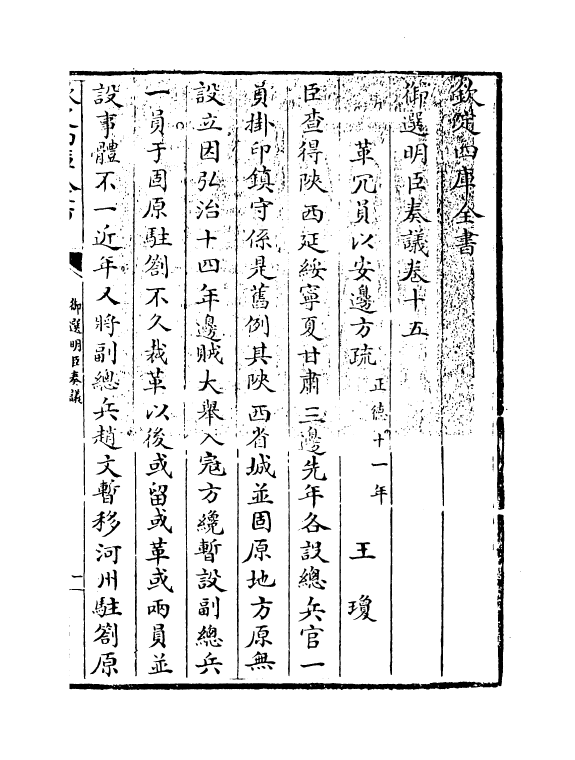 欽定四庫全書
御選明臣奏議卷十五
革冗員以安邊方疏 正德十一年 王瓊
臣查得陝西延綏寧夏甘肅三邊先年各設總兵官一
員掛印鎮守係是舊例其陝西省城並固原地方原無
設立因弘治十四年邊賊大舉入宼方纔暫設副總兵
一員于固原駐劄不久裁革以後或留或革或兩員並
設事體不一近年又將副總兵趙文暫移河州駐劄原
御選明臣奏議